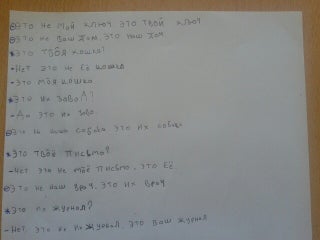 Это не мой ключ это твой ключ
Это не ваш дом, это наш дом
Это твоя кошка?
-Нет это не её кошка
-Это моя кошка
Это их завод?
-Да это их заво
Это не наша собака, это их собака
Это твоё письмо?
-Нет это не моё письмо, это её.
Это не наш врач, это их врач
Это их журнал?
-Нет, это не их журнал, это ваш журнал